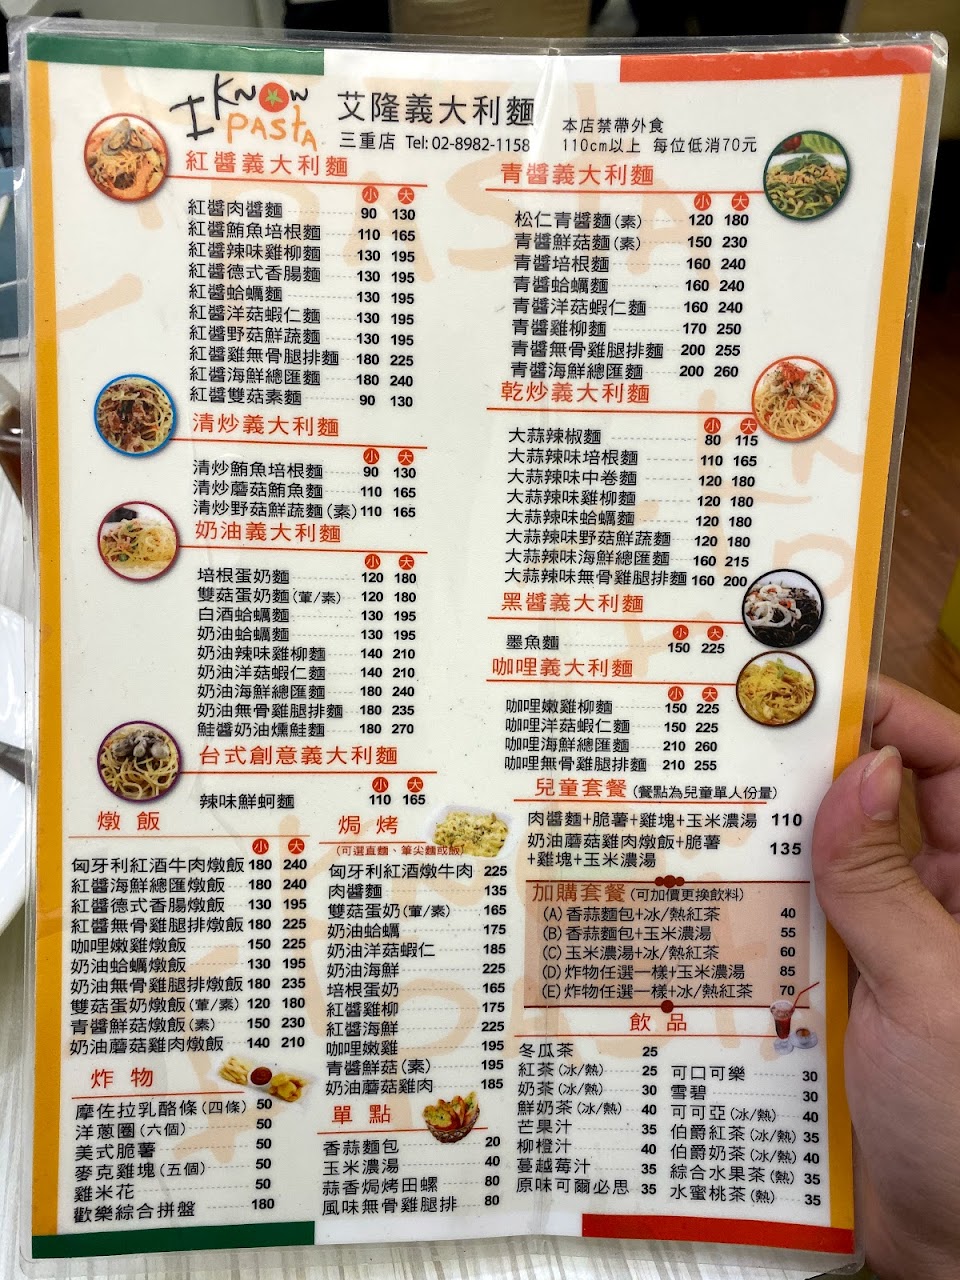 I KNOW PASTA
艾隆義大利麵
三重店 Tel: 02-8982-1158
本店禁帶外食
110cm以上 每位低消70元
紅醬義大利麵
小 大
紅醬肉醬麵 90 130
紅醬鮪魚培根麵 110 165
紅醬辣味雞柳麵 130 195
紅醬德式香腸麵 130 195
紅醬蛤蠣麵 130 195
紅醬洋菇蝦仁麵 130 195
紅醬野菇鮮蔬麵 130 195
紅醬雞無骨腿排麵 180 225
紅醬海鮮總匯麵 180 240
紅醬雙菇素麵 90 130
清炒義大利麵
小 大
清炒鮪魚培根麵 90 130
清炒蘑菇鮪魚麵 110 165
清炒野菇鮮蔬麵(素) 110 165
奶油義大利麵
小 大
培根蛋奶麵 120 180
雙菇蛋奶麵(葷/素) 120 180
白酒蛤蠣麵 130 195
奶油蛤蠣麵 130 195
奶油辣味雞柳麵 140 210
奶油洋菇蝦仁麵 140 210
奶油海鮮總匯麵 180 240
奶油無骨雞腿排麵 180 235
鮭醬奶油燻鮭麵 180 270
台式創意義大利麵
小 大
辣味鮮蚵麵 110 165
青醬義大利麵
小 大
松仁青醬麵(素) 120 180
青醬鮮菇麵(素) 150 230
青醬培根麵 160 240
青醬蛤蠣麵 160 240
青醬洋菇蝦仁麵 160 240
青醬雞柳麵 170 250
青醬無骨雞腿排麵 200 255
青醬海鮮總匯麵 200 260
乾炒義大利麵
小 大
大蒜辣椒麵 80 115
大蒜辣味培根麵 110 165
大蒜辣味中卷麵 120 180
大蒜辣味雞柳麵 120 180
大蒜辣味蛤蠣麵 120 180
大蒜辣味野菇鮮蔬麵 120 180
大蒜辣味海鮮總匯麵 160 215
大蒜辣味無骨雞腿排麵 160 200
黑醬義大利麵
小 大
墨魚麵 150 225
咖哩義大利麵
小 大
咖哩嫩雞柳麵 150 225
咖哩洋菇蝦仁麵 150 225
咖哩海鮮總匯麵 210 260
咖哩無骨雞腿排麵 210 255
兒童套餐(餐點為兒童單人份量)
肉醬麵+脆薯+雞塊+玉米濃湯 110
奶油蘑菇雞肉燉飯+脆薯
+雞塊+玉米濃湯 135
加購套餐(可加價更換飲料)
(A)香蒜麵包+冰/熱紅茶 40
(B)香蒜麵包+玉米濃湯 55
(C)玉米濃湯+冰/熱紅茶 60
(D)炸物任選一樣+玉米濃湯 85
(E)炸物任選一樣+冰/熱紅茶 70
燉飯
小 大
匈牙利紅酒牛肉燉飯 180 240
紅醬海鮮總匯燉飯 180 240
紅醬德式香腸燉飯 130 195
紅醬無骨雞腿排燉飯 180 225
咖哩嫩雞燉飯 150 225
奶油蛤蠣燉飯 130 195
奶油無骨雞腿排燉飯 180 235
雙菇蛋奶燉飯(葷/素) 120 180
青醬鮮菇燉飯(素) 150 230
奶油蘑菇雞肉燉飯 140 210
炸物
摩佐拉乳酪條(四條) 50
洋蔥圈(六個) 50
美式脆薯 50
麥克雞塊(五個) 50
雞米花 50
歡樂綜合拼盤 180
焗烤
(可選直麵、筆尖麵或飯)
匈牙利紅酒燉牛肉 225
肉醬麵 135
雙菇蛋奶(葷/素) 165
奶油蛤蠣 175
奶油洋菇蝦仁 185
奶油海鮮 225
培根蛋奶 165
紅醬雞柳 175
紅醬海鮮 225
咖哩嫩雞 195
青醬鮮菇(素) 195
奶油蘑菇雞肉 185
單點
香蒜麵包 20
玉米濃湯 40
蒜香焗烤田螺 80
風味無骨雞腿排 80
飲品
冬瓜茶 25
紅茶(冰/熱) 25
奶茶(冰/熱) 30
鮮奶茶(冰/熱) 40
芒果汁 35
柳橙汁 40
蔓越莓汁 35
原味可爾必思 35
可口可樂 30
雪碧 30
可可亞(冰/熱) 40
伯爵紅茶(冰/熱) 35
伯爵奶茶(冰/熱) 40
綜合水果茶(熱) 35
水蜜桃茶(熱) 35